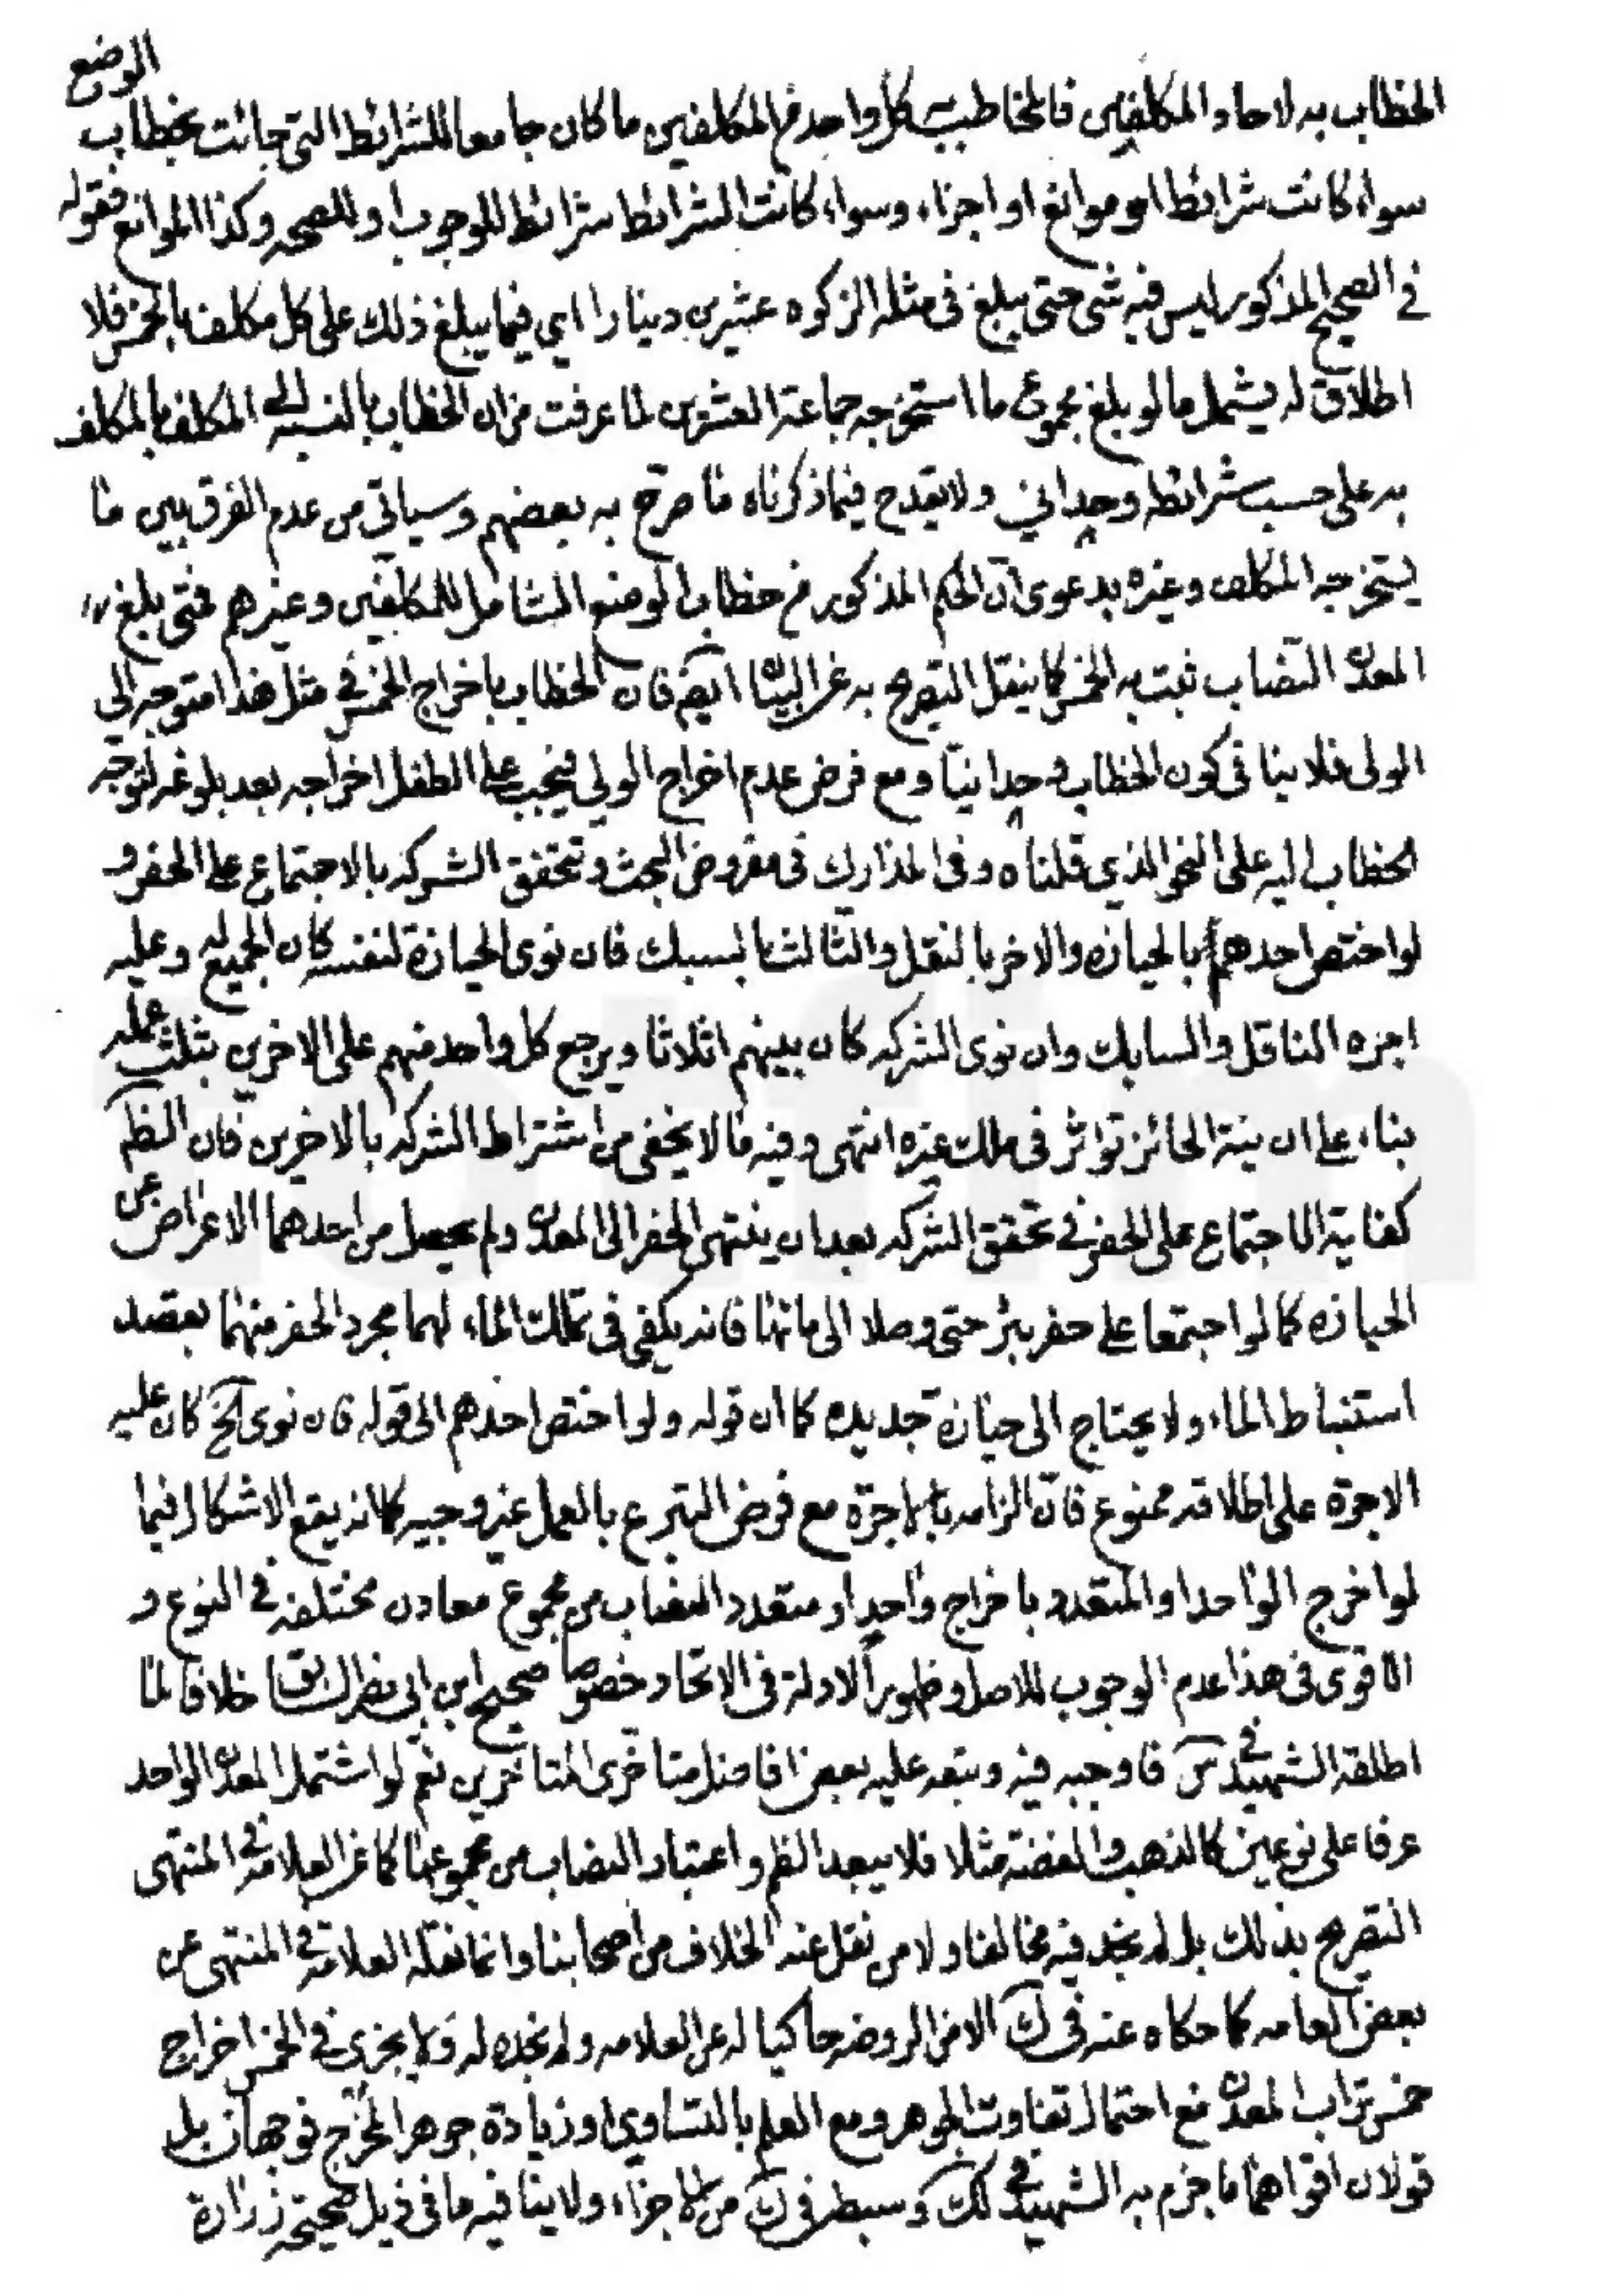 الخطاب به لاحاد المكلفين فالمخاطب به كل واحد من المكلفين ما كان جامعا للشرائط التى جائت بخطاب الوضع
سواء كانت شرائط او موانع او اجزاء وسواء كانت الشرائط شرائط للوجوب او للصحه وكذا الموانع فقوله
في الصحيح المذكور ليس فيه شى حتى يبلغ فى مثله الزكوه عشرين دينارا اى فيما يبلغ ذلك على كل مكلف بالخمس فلا
اطلاق له يشمل ما لو بلغ مجموع ما استخرجه جماعة العشرين لما عرفت من ان الخطاب بالنسبه الى المكلف بالمكلف
به على حسب شرائطه وحداني ولا يقدح فيما ذكرناه ما صرح به بعضهم وسياتى من عدم الفرق بين ما
يستخرجه المكلف وغيره بدعوى ان الحكم المذكور من خطاب الوضع الشامل للمكلفين وغيرهم فمتى بلغ
المعدن النصاب ثبت به الخمس كما ينقل التصريح به عن البيان ايضا فان الخطاب باخراج الخمس في مثل هذا متوجه الى
الولى فلا ينافى كون الخطاب وحدانيا ومع فرض عدم اخراج الولي فيجب على الطفل اخراجه بعد بلوغه لتوجه
الخطاب اليه على النحو الذي قلناه وفى المدارك فى مفروض البحث وتحقق الشركه بالاجتماع على الحفر و
لو اختص احدهم بالحيازه والاخر بالنقل والثالث بالسبك فان نوى الحيازة لنفسه كان الجميع له وعليه
اجره الناقل والسابك وان نوى الشركه كان بينهم اثلاثا ويرجع كل واحد منهم على الاخرين بثلث عمله
بناء على ان نية الحائز تؤثر فى ملك غيره انتهى وفيه ما لا يخفى من اشتراط الشركه بالاخرين فان الظم
كفاية الاجتماع على الحفر في تحقق الشركه بعد ان ينتهى الحفر الى المعدن ولم يحصل من احدهما الاعراض عن
الحيازه كما لو اجتمعا على حفر بئر حتى وصلا الى مائها فانه يكفى فى تملك الماء لهما مجرد الحفر منهما بقصد
استنباط الماء ولا يحتاج الى حيازة جديده كما ان قوله ولو اختص احدهم الى قوله فان نوى الخ كان عليه
الاجرة على اطلاقه ممنوع فان الزامه بالاجرة مع فرض التبرع بالعمل غير وجيه كما انه يقع الاشكال فيما
لو اخرج الواحد او المتعدد باخراج واحد او متعدد النصاب من مجموع معادن مختلفه في النوع و
الاقوى فى هذا عدم الوجوب للاصل وظهور الادلة فى الاتحاد خصوصا صحيح ابن ابى نصر السابق خلافا لما
اطلقه الشهيد في س فاوجبه فيه وتبعه عليه بعض افاضل متاخرى المتاخرين نعم لو اشتمل المعدن الواحد
عرفا على نوعين كالذهب والفضة مثلا فلا يبعد الظم واعتبار النصاب من مجموعها كما عن العلامه في المنتهى
التصريح بذلك بل لم نجد فيه مخالفا ولا من نقل عنه الخلاف من اصحابنا وانما نقله العلامة في المنتهى عن
بعض العامه كما حكاه عنه فى ك الا فى الروضه حاكيا له عن العلامه ولم نجده له ولا يجزى في الخمس اخراج
خمس تراب المعدن مع احتمال تفاوت الجوهر ومع العلم بالتساوى او زيادة جوهر المخرج فوجهان بل
قولان اقواهما ما جزم به الشهيد في لك وسبطه فى ك من الاجزاء ولا ينافيه ما فى ذيل صحيحه زرارة